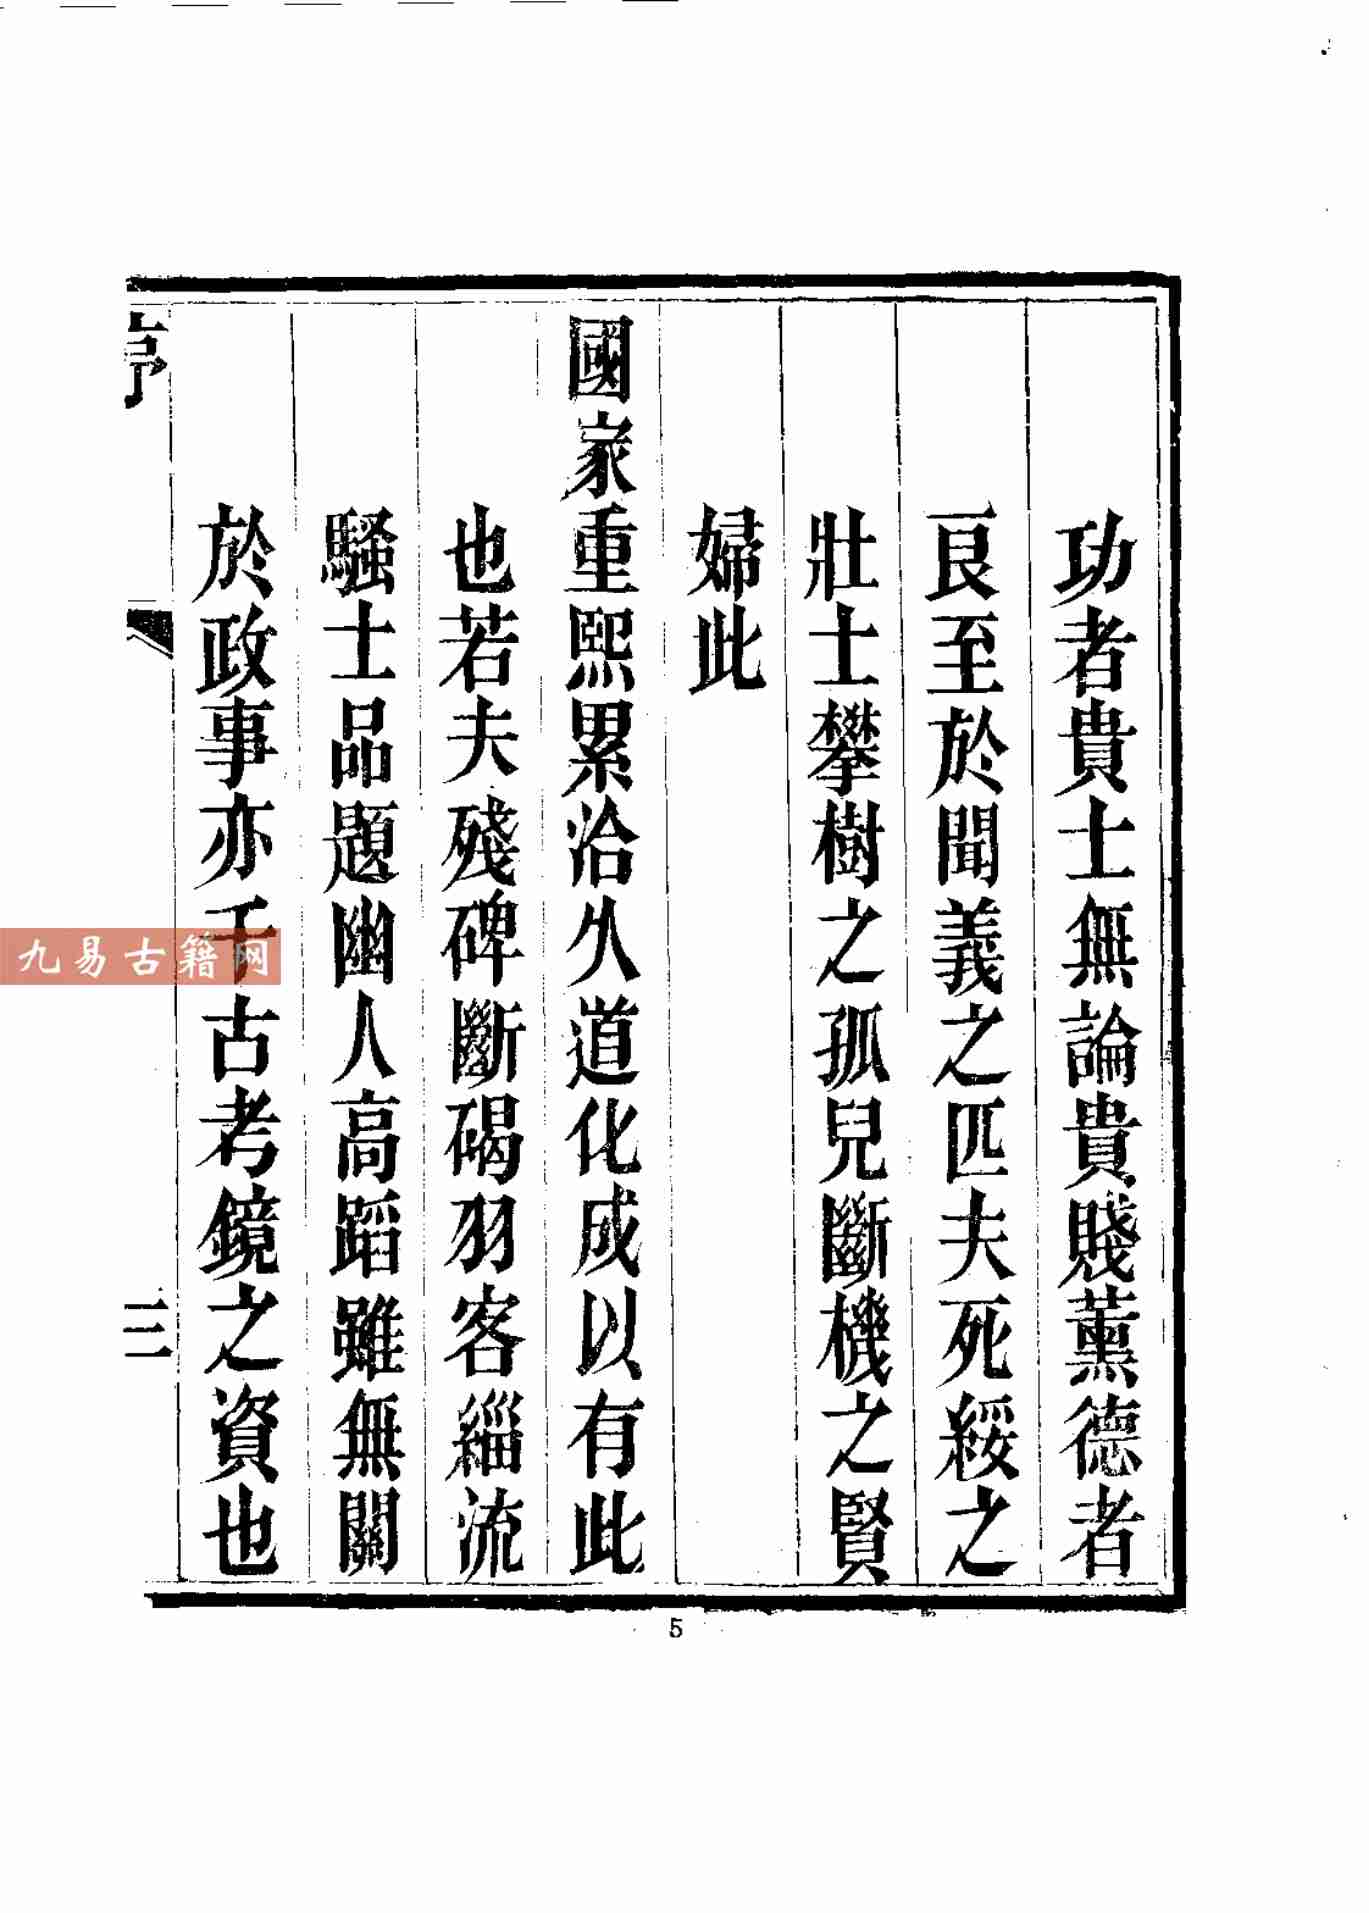 功者貴士無論貴賤薰德者
良至於聞義之匹夫死綏之
壯士攀樹之孤兒斷機之賢
婦此
國家重熙累洽久道化成以有此
也若夫殘碑斷碣羽客緇流
騷士品題幽人高蹈雖無關
於政事亦千古考鏡之資也
序
三
5
九易古籍网